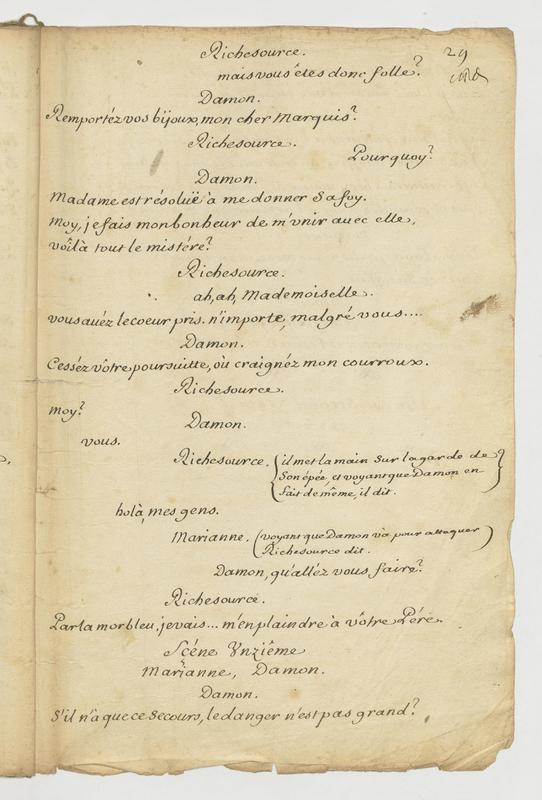 29
Richesource.
mais vous êtes donc folle?
Damon.
Remportéz vos bijoux, mon cher Marquis?
Richesource.
Pourquoy?
Damon.
Madame est résolüe à me donner sa foy.
Moy, je fais mon bonheur de m'unir avec elle,
voilà tout le mistére?
Richesource.
ah, ah, Mademoiselle.
vous avéz le coeur pris. n'importe, malgré vous....
Damon.
Cesséz vôtre poursuitte, où craignéz mon courroux.
Richesource.
moy?
Damon.
vous.
Richesource. (il met la main sur la garde de
son épée, et voyant que Damon en
fait de même, il dit.)
holà, mes gens.
Marianne. (voyant que Damon va pour attaquer
Richesource dit.)
Damon, qu'alléz vous faire?
Richesource.
Parla morbleu, je vais... m'en plaindre à vôtre Pére.
Scéne Vnziême
Marianne, Damon.
Damon.
S'il n'a que ce secours, le danger n'est pas grand?